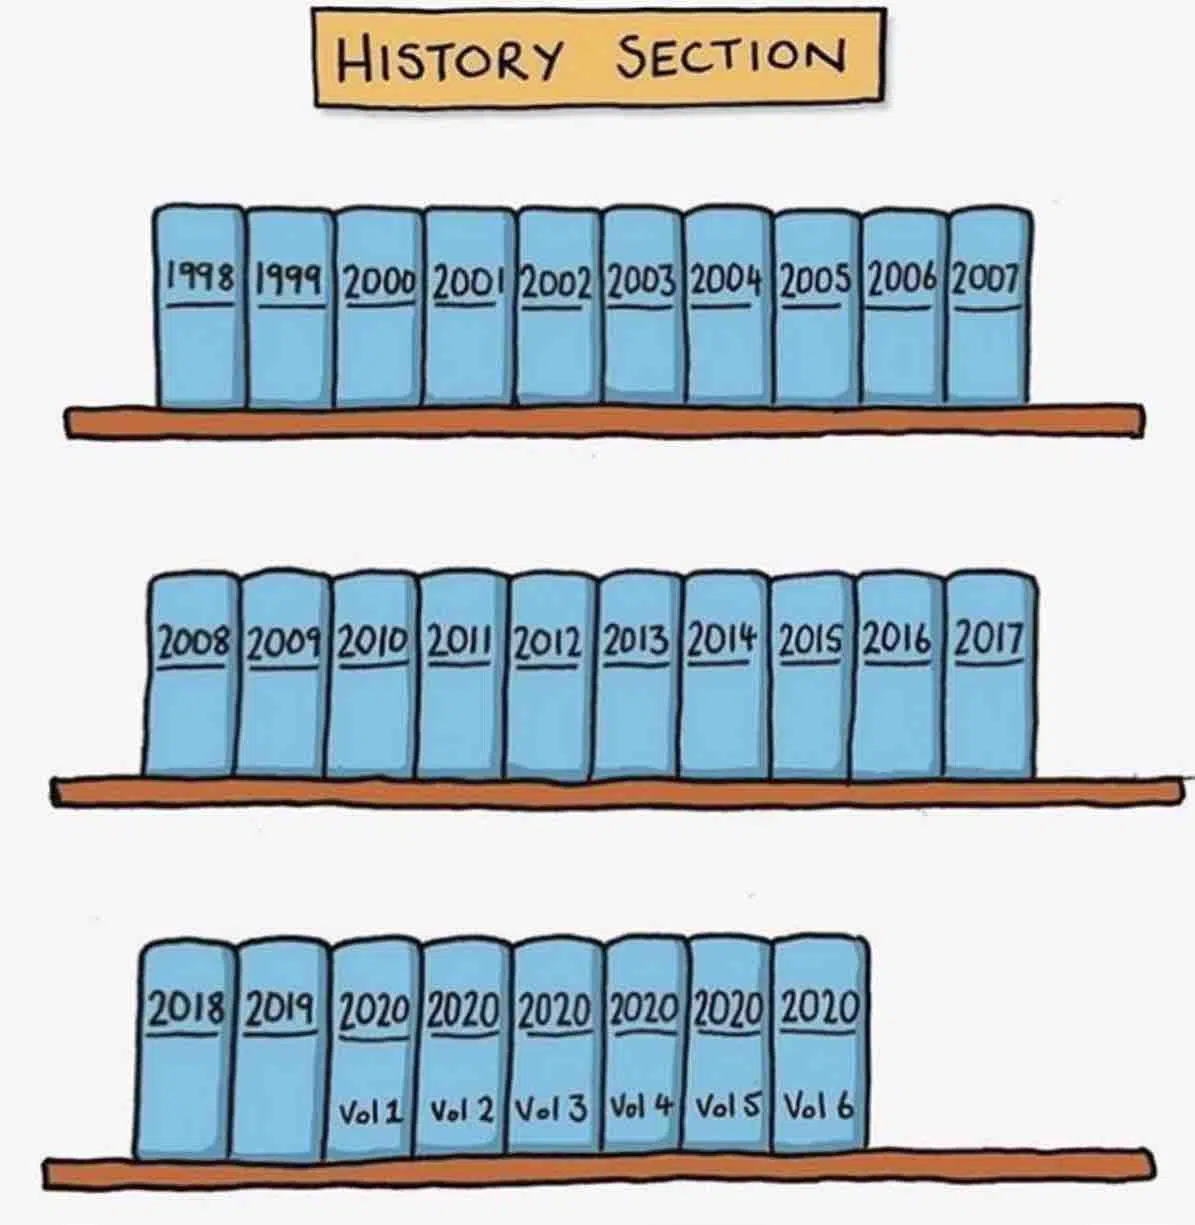 HISTORY SECTION
1998 1999 2000 2001 2002 2003 2004 2005 2006 2007
2008 2009 2010 2011 2012 2013 2014 2015 2016 2017
2018 2019 2020 2020 2020 2020 2020 2020
Vol 1 Vol 2 Vol 3 Vol 4 Vol 5 Vol 6